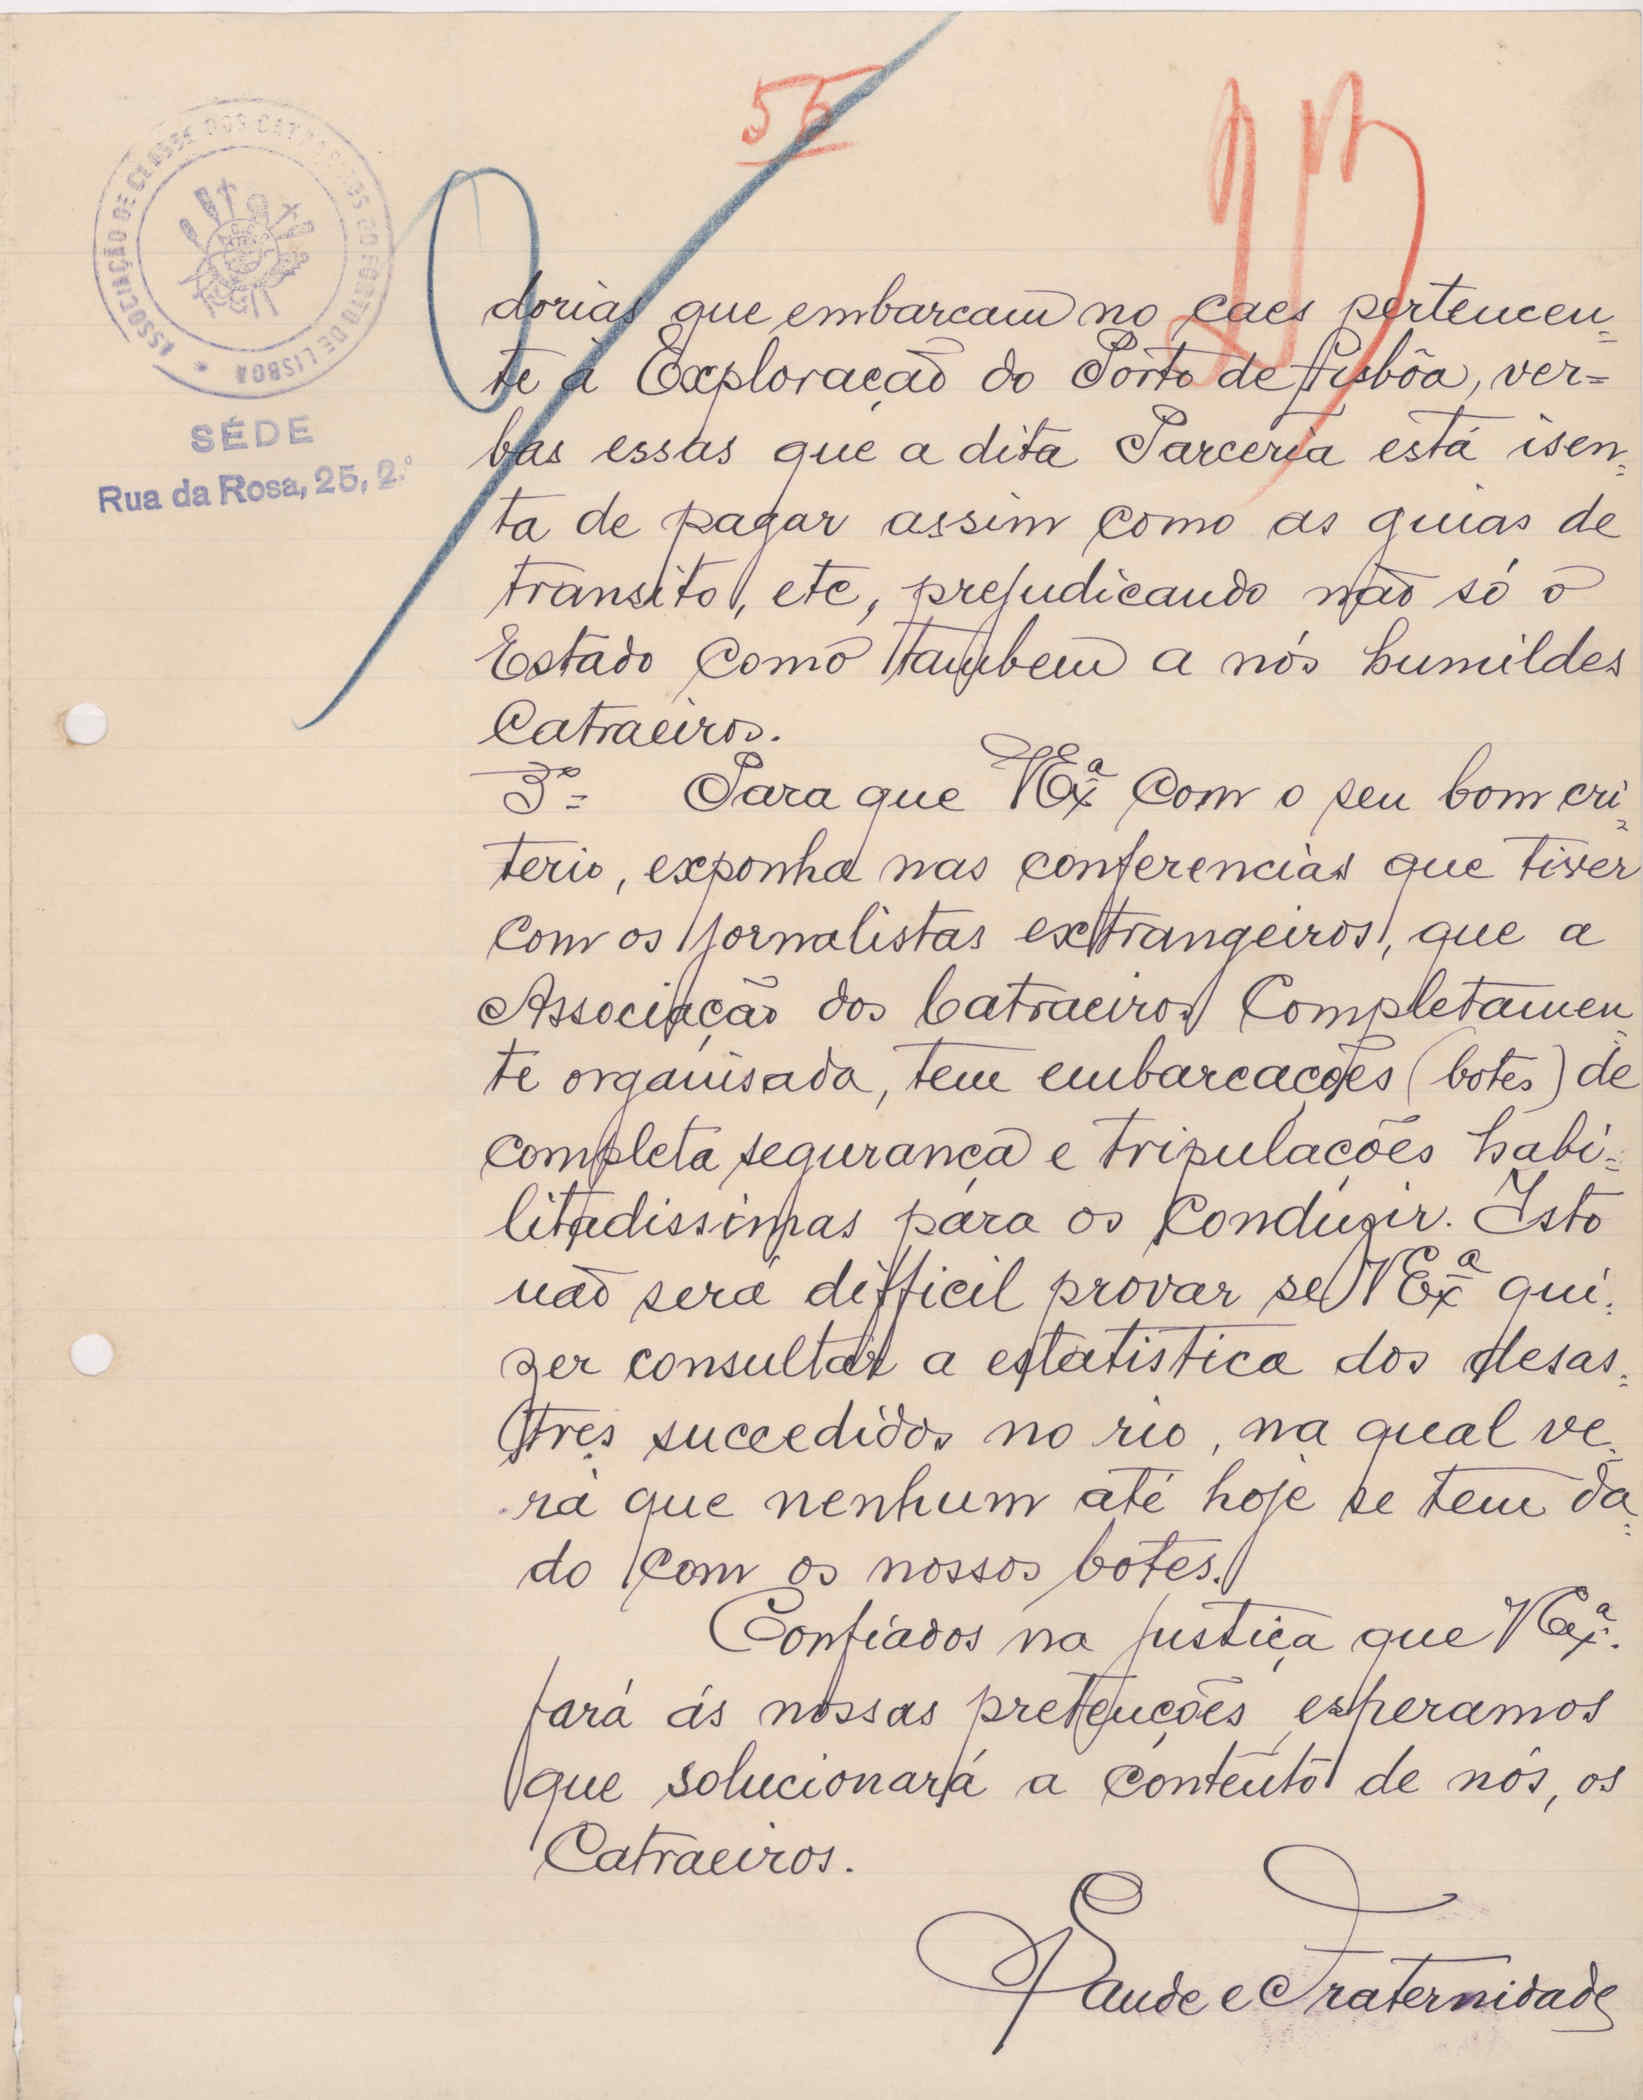 56
ASSOCIAÇÃO DE CLASSE DOS CATRAEIROS DO PORTO DE LISBOA *
SÉDE
Rua da Rosa, 25, 2.º
dorias que embarcam no caes pertencen=
te á Exploração do Porto de Lisbôa, ver=
bas essas que a dita Parceria está isen=
ta de pagar assim como as guias de
transito, etc, prejudicando não só o
Estado como tambem a nós humildes
Catraeiros.
3º= Para que VExª com o seu bom cri=
terio, exponha nas conferencias que tiver
com os jornalistas extrangeiros, que a
Associação dos Catraeiros completamen=
te organisada, tem embarcações (botes) de
completa segurança e tripulações habi=
litadissimas para os conduzir. Isto
não será difficil provar se VExª qui=
zer consultar a estatistica dos desas=
tres succedidos no rio, na qual ve=
rá que nenhum até hoje se tem da=
do com os nossos botes.
Confiados na justiça que VExª.
fará ás nossas pretenções, esperamos
que solucionará a contento de nós, os
Catraeiros.
Saude e Fraternidade